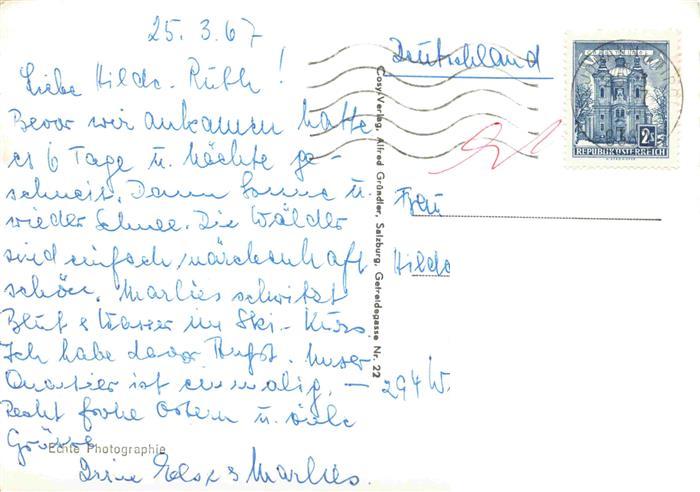 25. 3. 67
Liebe Hilde-Ruth!
Bevor wir ankamen hatte
es 6 Tage u. Nächte ge-
schneit. Dann Sonne u.
wieder Schnee. Die Wälder
sind einfach märchenhaft
schön. Marlies schwitzt
Blut & Wasser im Ski-Kurs.
Ich habe davor Angst. Unser
Quartier ist einmalig. —
Recht frohe Ostern u. viele
Grüsse
Echte Photographie
Deine Else & Marlies.
Cosy-Verlag, Alfred Gründler, Salzburg, Getreidegasse Nr. 22
Deutschland
Frau
Hilde
294 W
2 S
REPUBLIK ÖSTERREICH